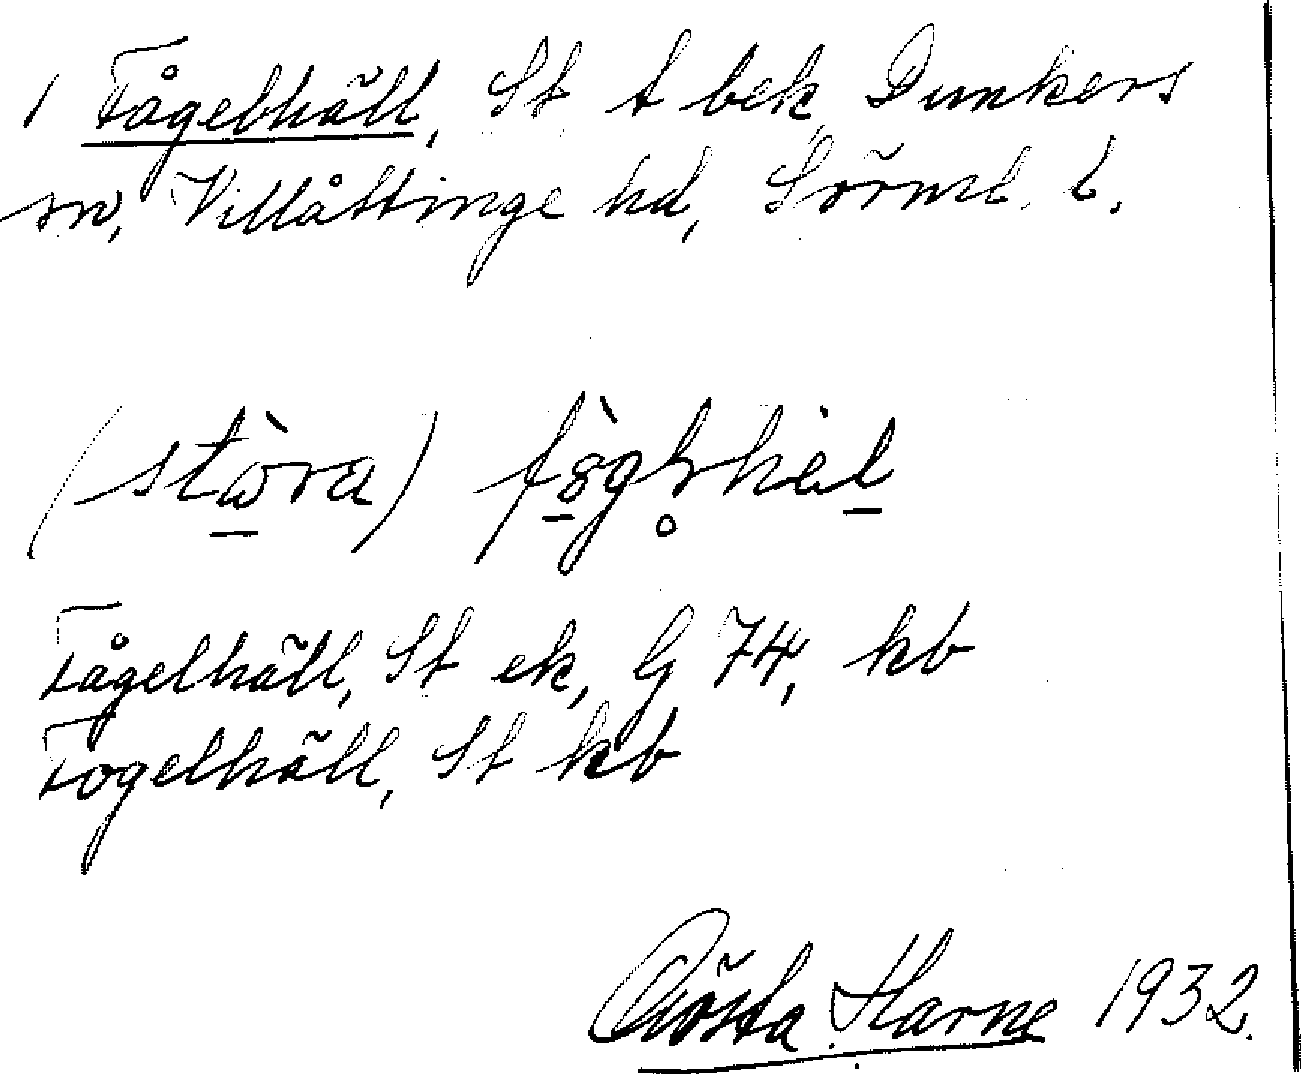 1 Fågelhäll, St t bek Dunkers
sn, Villåttinge hd, Sörml. l.
(stòra)
Fågelhäll, St ek, G 74, kb
Fogelhäll, St kb
Gösta Harne 1932.